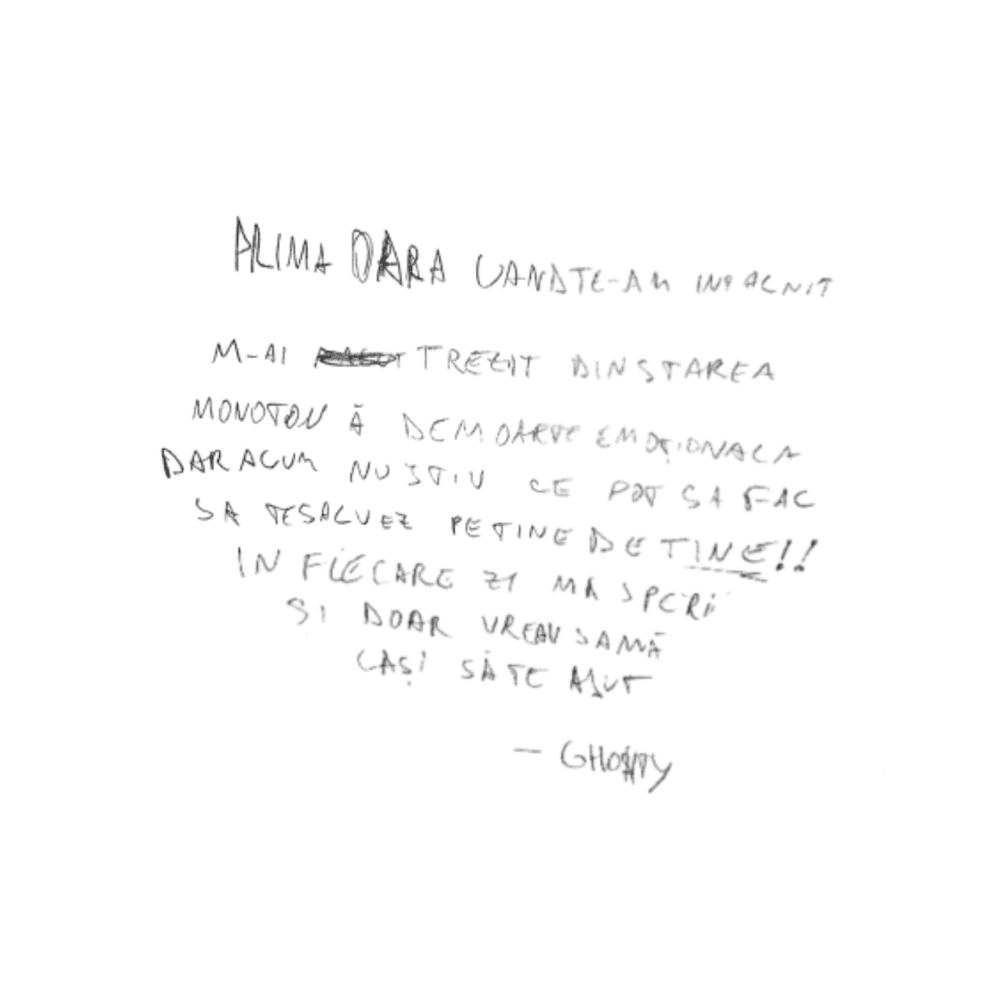 PRIMA OARA CAND TE-AM INTALNIT
M-AI TREZIT DIN STAREA
MONOTONĂ DE MOARTE EMOȚIONALA
DAR ACUM NU STIU CE POT SA FAC
SA TE SALVEZ PE TINE DE TINE!!
IN FIECARE ZI MA SPERII
SI DOAR VREAU SA MĂ
CAȘI SĂ TE AJUT
— GHOSTY